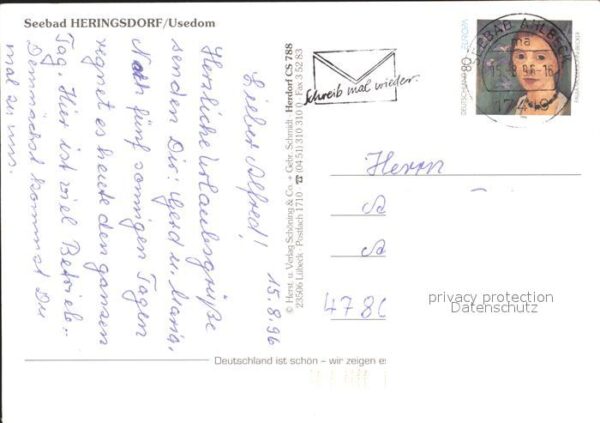 Seebad HERINGSDORF/Usedom
15.8.96
Lieber Alfred!
Herzliche Urlaubsgrüße
senden Dir: Gerd u. Maria.
Nach fünf sonnigen Tagen
regnet es heute den ganzen
Tag. Hier ist viel Betrieb.-
Demnächst kommst Du
mal zu uns.
© Herst. u. Verlag Schöning & Co. + Gebr. Schmidt Herdorf CS 788
23506 Lübeck · Postfach 1710 · ☎ (04 51) 310 310 0 · Fax 3 52 83
Schreib mal wieder.
SEEBAD AHLBECK
ma
15.-8.96-16
17419
80
Herrn
478
privacy protection
Datenschutz
Deutschland ist schön – wir zeigen es